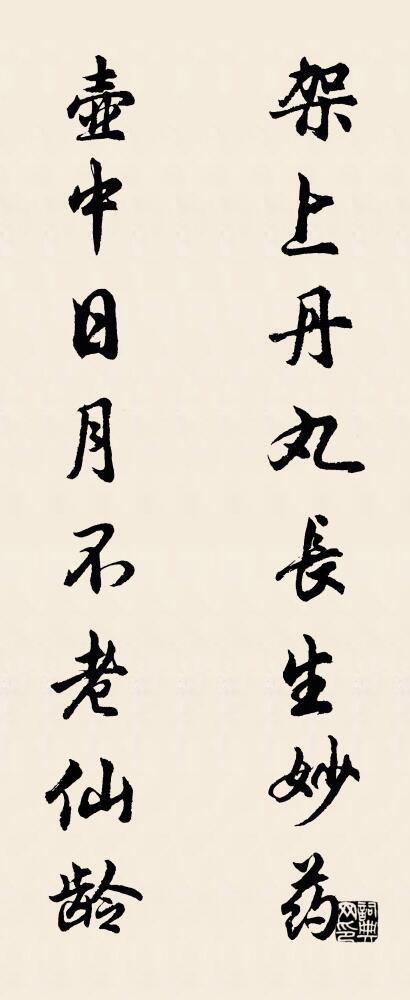 架上丹丸長生妙药
壶中日月不老仙龄
詞典网印